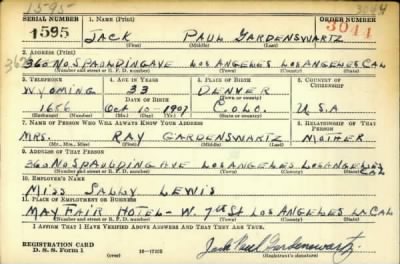 1595
3044
SERIAL NUMBER 1. NAME (Print) ORDER NUMBER
1595 JACK PAUL GARDENSWARTZ 3044
(First) (Middle) (Last)
2. ADDRESS (Print)
360 NO. SPAULDING AVE LOS ANGELES LOS ANGELES CAL
(Number and street or R. F. D. number) (Town) (County) (State)
3. TELEPHONE 4. AGE IN YEARS 5. PLACE OF BIRTH 6. COUNTRY OF CITIZENSHIP
WYOMING 33 DENVER
DATE OF BIRTH (Town or county)
1656 OCT 10-1907 COLO. U S A
(Exchange) (Number) (Mo.) (Day) (Yr.) (State or country)
7. NAME OF PERSON WHO WILL ALWAYS KNOW YOUR ADDRESS 8. RELATIONSHIP OF THAT PERSON
MRS. RAY GARDENSWARTZ MOTHER
(Mr., Mrs., Miss) (First) (Middle) (Last)
9. ADDRESS OF THAT PERSON
360 NO SPAULDING AVE LOS ANGELES LOS ANGELES CAL
(Number and street or R. F. D. number) (Town) (County) (State)
10. EMPLOYER'S NAME
MISS SALLY LEWIS
11. PLACE OF EMPLOYMENT OR BUSINESS
MAYFAIR HOTEL - W. 7TH ST LOS ANGELES LA CAL
(Number and street or R. F. D. number) (Town) (County) (State)
I AFFIRM THAT I HAVE VERIFIED ABOVE ANSWERS AND THAT THEY ARE TRUE.
REGISTRATION CARD
D. S. S. Form 1 16-17105 Jack Paul Gardenswartz